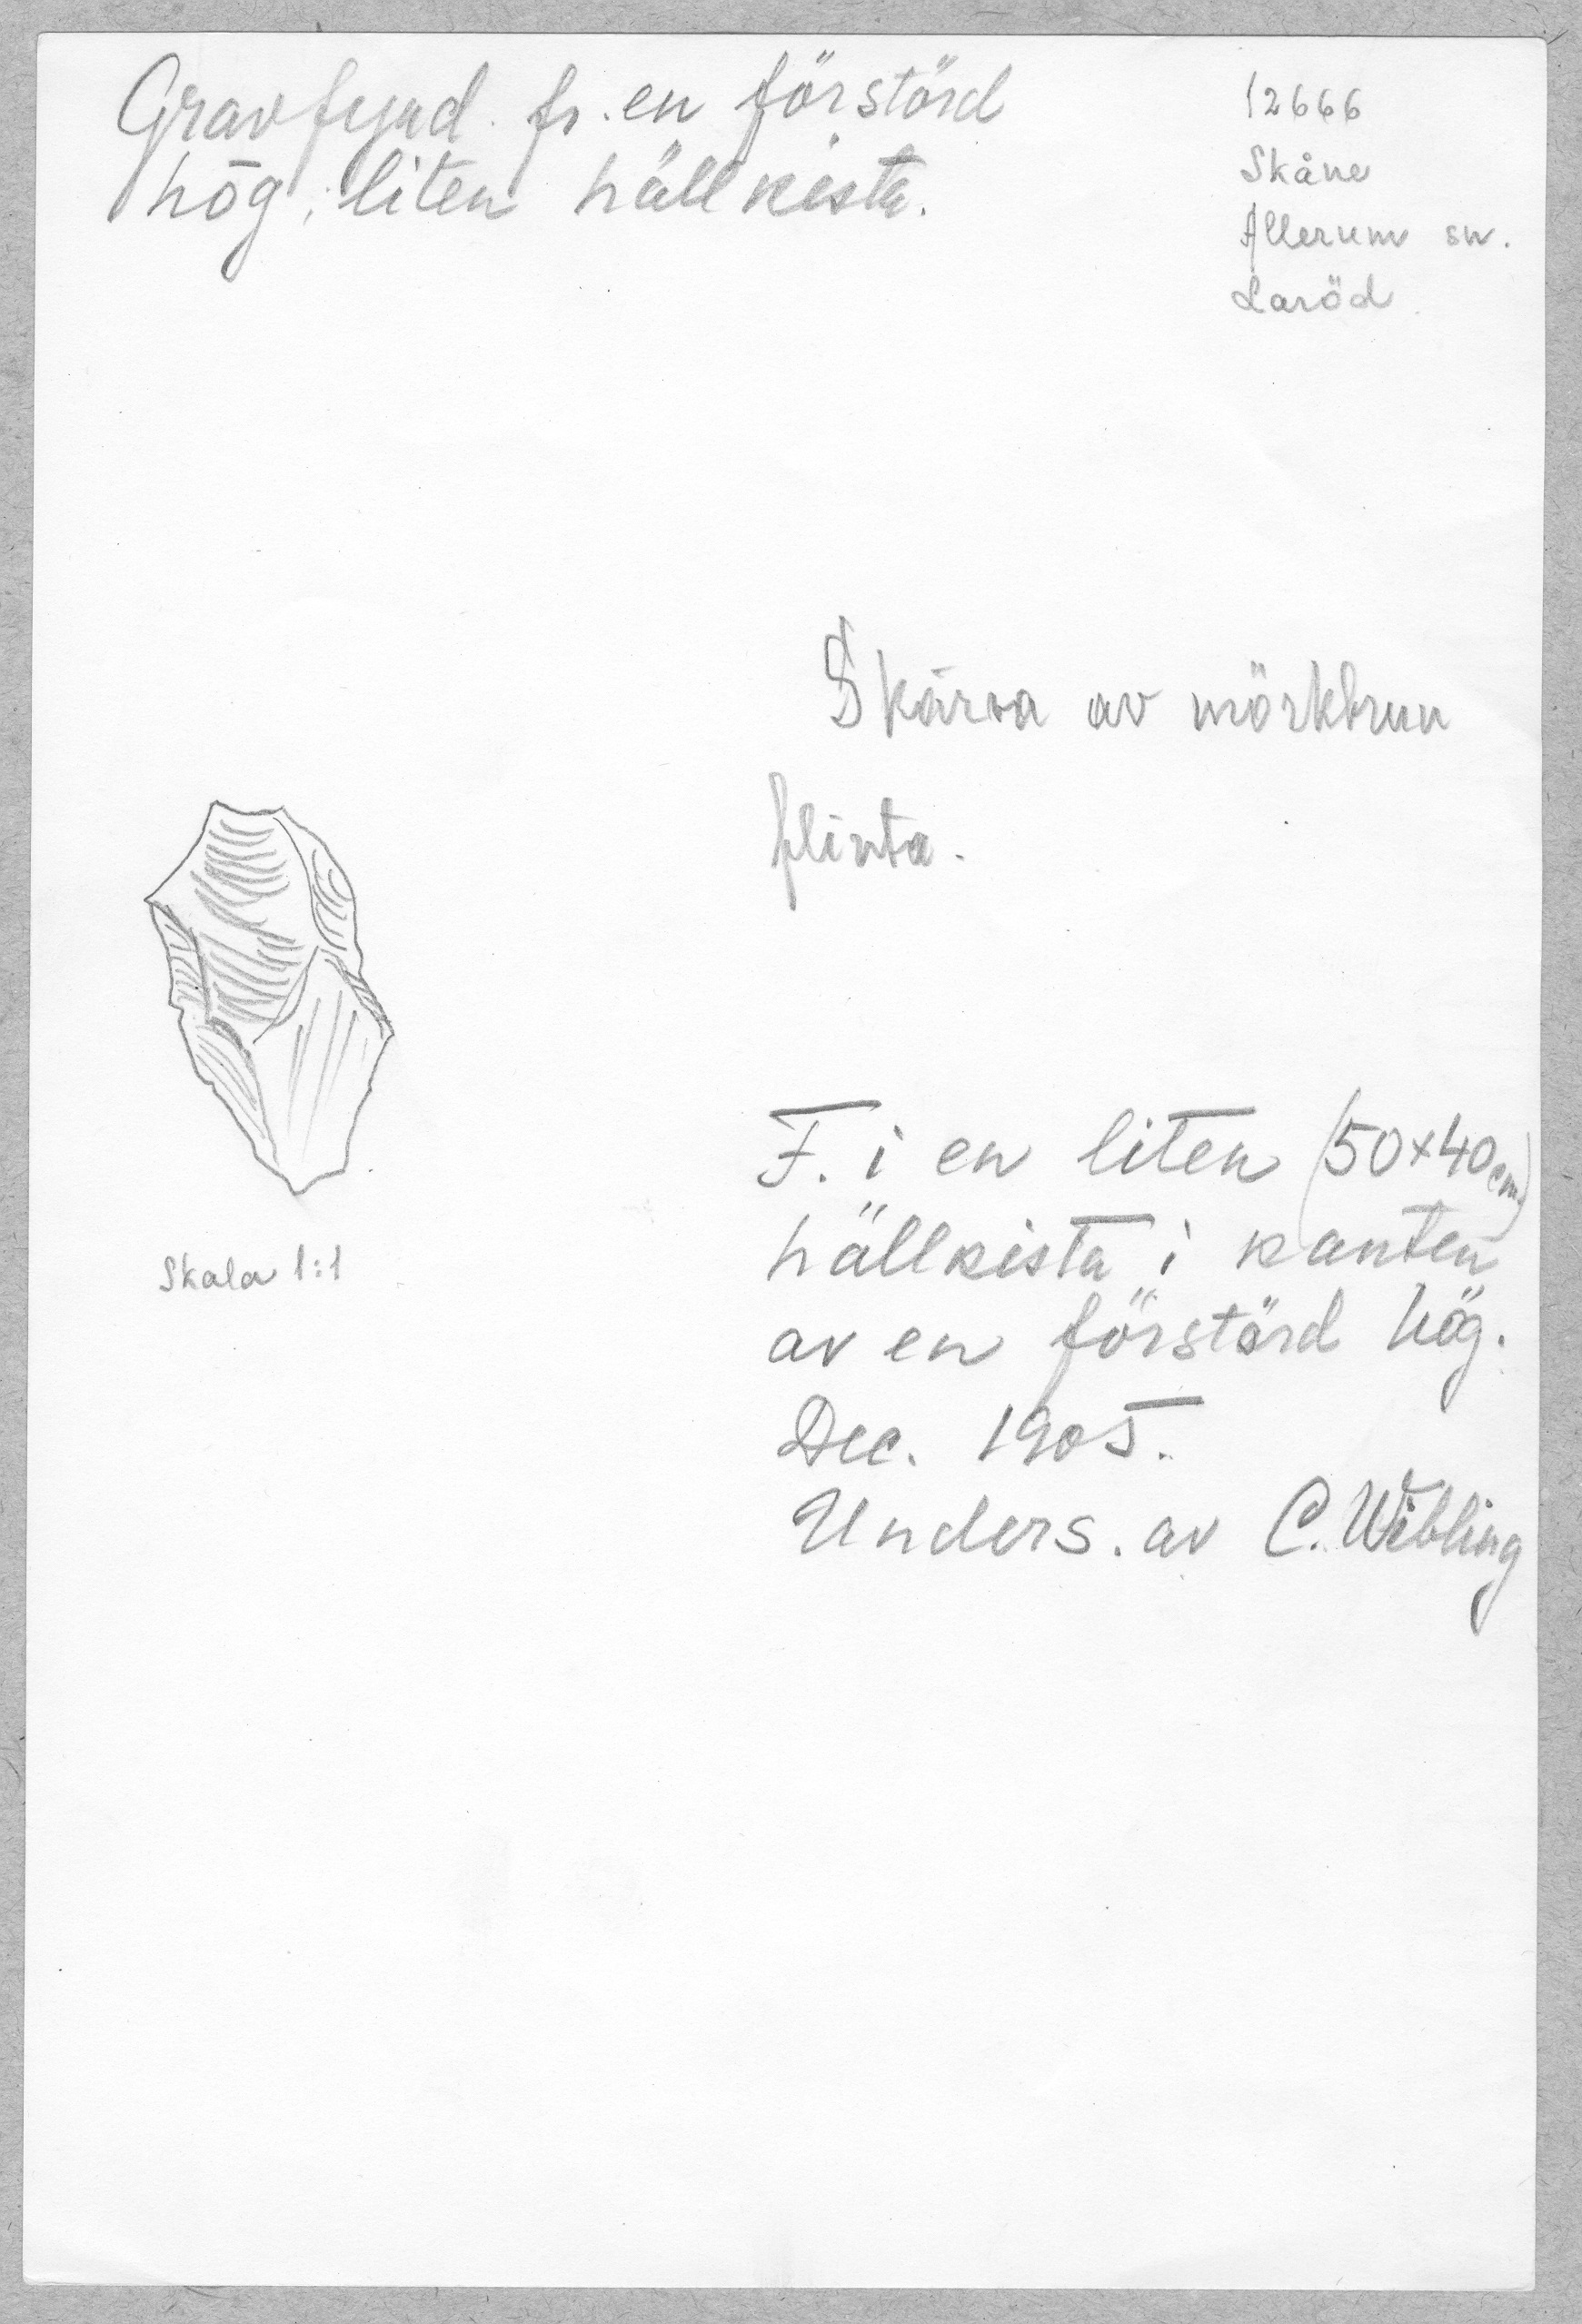 Gravfynd fr. en förstörd
hög; liten hällkista.
12666
Skåne
Allerum sn.
Laröd
Skärva av mörkbrun
flinta.
Skala 1:1
F. i en liten (50×40 cm)
hällkista i kanten
av en förstörd hög.
Dec. 1905.
Unders. av C. Wibling